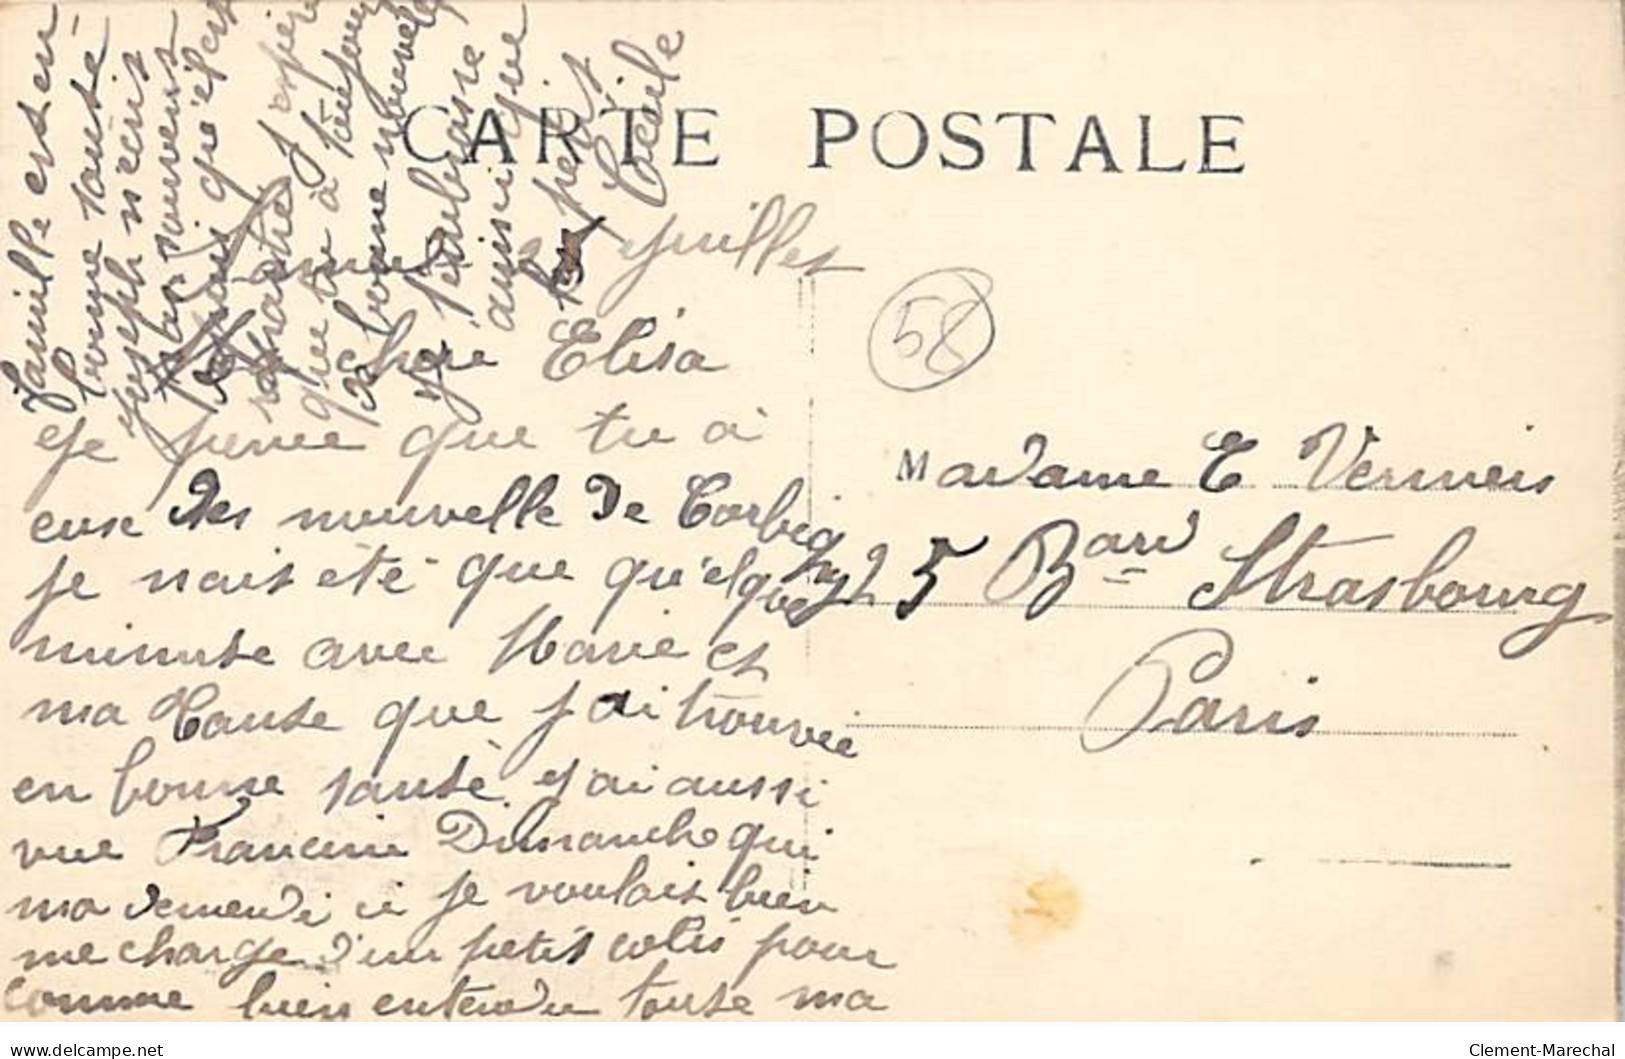 CARTE POSTALE
juillet
58
chere Elisa
Je pense que tu a
euse des nouvelle de Corbigny
je nais été que qu'elque
minuste avec Marie et
ma tante que j'ai trouvée
en bonne santé j'ai aussi
vue Francine Dimanche qui
ma demendé ci je voulais bien
me charge d'un petit colis pour
comme bien entendu toute ma
famille est en
bonne santé
Joseph n'ecris
pas souvent
mais qu'il est
j'espere
que tu à toujours
de bonne nouvelle
je t'embrasse
ainsi que
les petits
Cécile
Madame E Verneis
25 Bard Strasbourg
Paris
delcampe.net
Clement-Marechal